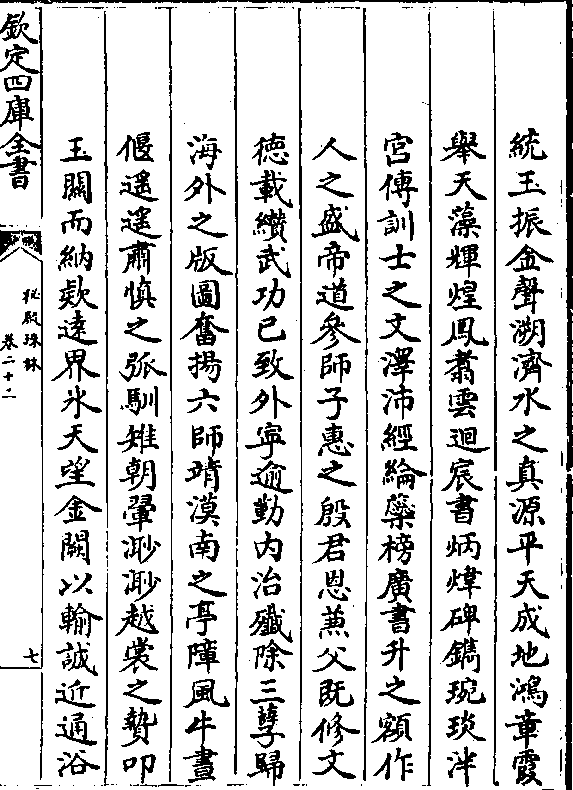 統玉振金聲溯濟水之真源平天成地鴻章霞
舉天藻輝煌鳳翥雲迴宸書炳煒碑鐫琬琰泮
宮傳訓士之文澤沛經綸蘂榜廣書升之額作
人之盛帝道參師子惠之殷君恩兼父既修文
徳載纘武功已致外寜逾勤内治殲除三孽歸
海外之版圖奮揚六師靖漠南之亭障風牛晝
偃遥遥肅慎之弧馴雉朝翬渺渺越裳之贄叩
玉關而納欵遠界氷天望金闕以輸誠近通浴
欽定四庫全書
秘殿珠林
卷二十二
七